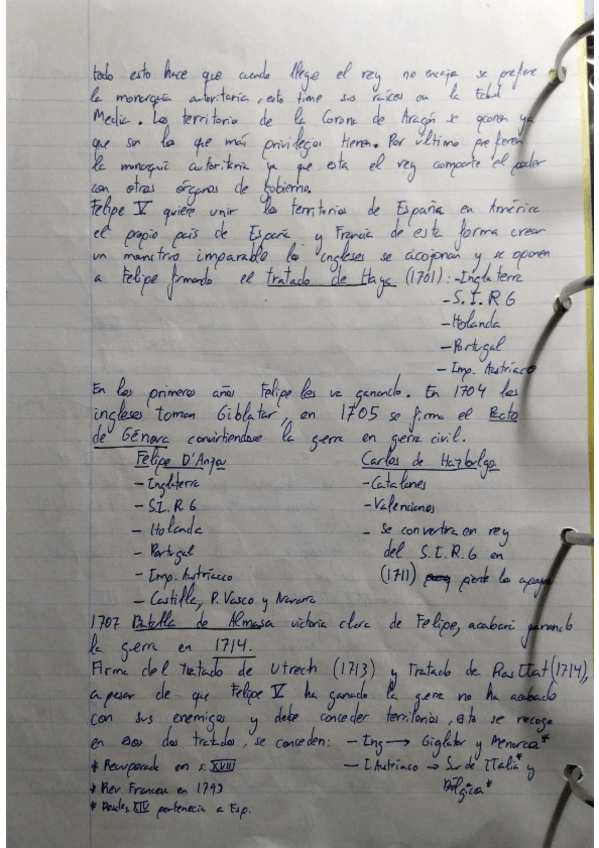 todo esto hace que cuando llege el rey no encaja se prefiere
la monarquía autoritaria, esto tiene sus raíces en la Edad
Media. Los territorio de la Corona de Aragón se oponen ya
que son los que más privilegios tienen. Por último prefieren
la monarquía autoritaria ya que esta el rey comparte el poder
con otros órganos de gobierno.
Felipe V quiere unir los territorios de España en América
el propio pais de España y Francia de esta forma crear
un monstruo imparable los ingleses se acojonan y se oponen
a Felipe firmando el tratado de Haya (1701): - Inglaterra
- S.I.R.G
- Holanda
- Portugal
- Imp. Austríaco
En los primeros años Felipe les va ganando. En 1704 los
ingleses toman Giblatar, en 1705 se firma el Pacto
de Génova convirtiendose la gerra en gerra civil.
Felipe D'Anjou Carlos de Hazburgo
- Inglaterra - Catalanes
- S.I.R.G - Valencianos
- Holanda - Se convertira en rey
- Portugal del S.I.R.G en
- Imp. Austriacco (1711) pierde los apoyos
- Castilla, P. Vasco y Navarra
1707 Batalla de Almasa victoria clara de Felipe, acabará ganando
la gerra en 1714.
Firma del Tratado de Utrech (1713) y Tratado de Rasttat (1714),
a pesar de que Felipe V ha ganado la gerra no ha acabado
con sus enemigos y debe conceder territorios, esto se recoge
en esos dos tratados, se conceden: - Ing → Giglatar y Menorca*
* Recuperada en s. XVIII - I. Austriaco → Sur de Italia* y
* Rev Francesa en 1793 Bélgica*
* Desde s. XIV pertenecia a Esp.